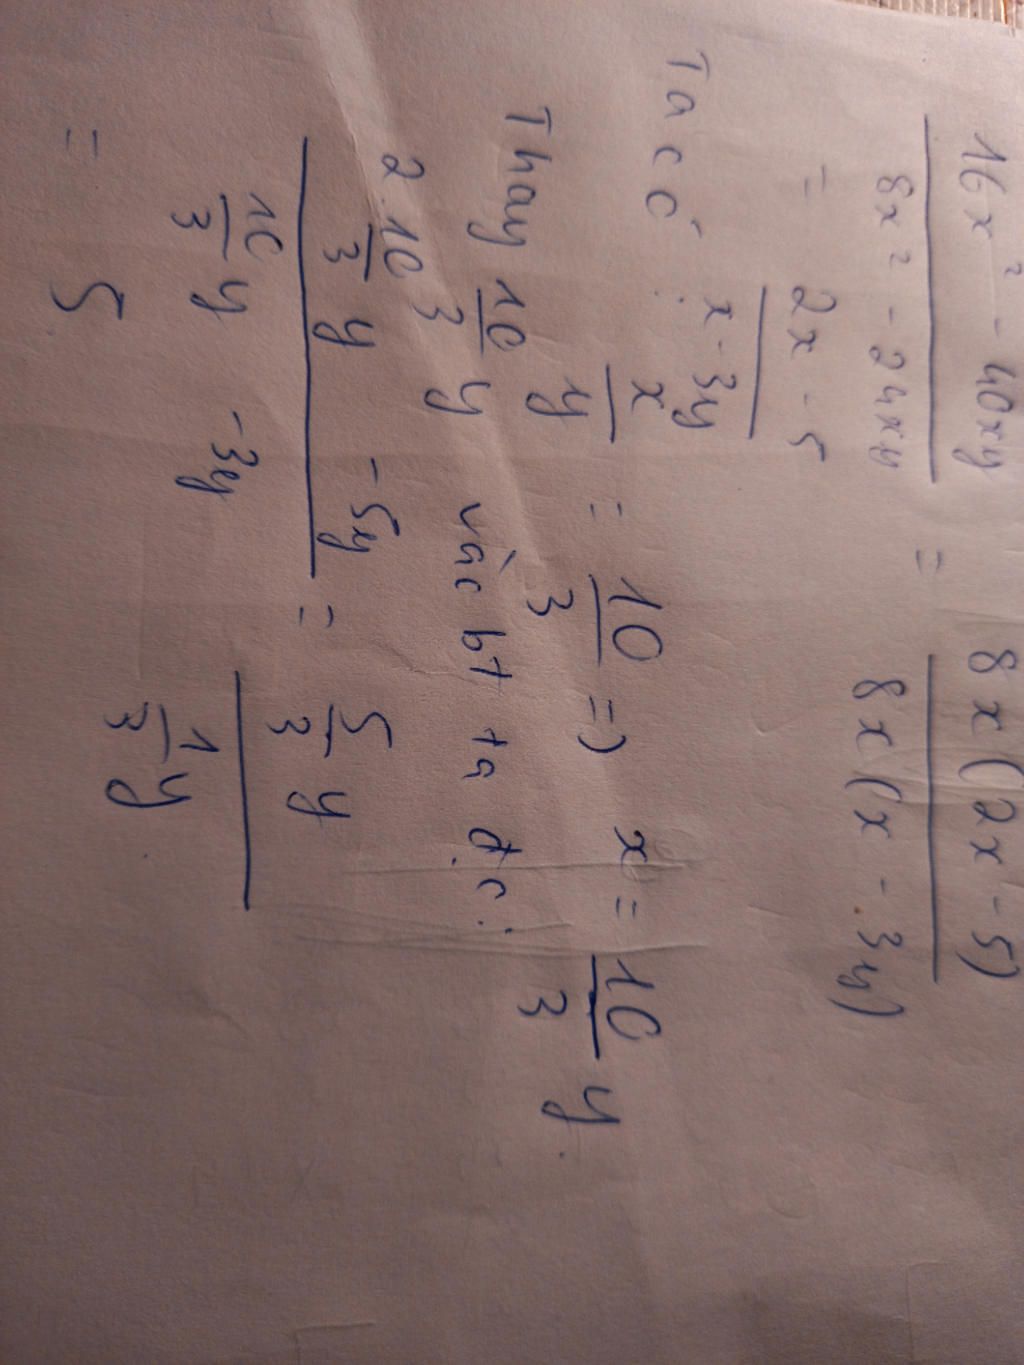 16x² - 40xy / 8x² - 24xy = 8x(2x - 5) / 8x(x - 3y)
= 2x - 5 / x - 3y
Ta có: x/y = 10/3 => x = 10/3 y.
Thay 10/3 y vào bt ta đ.c:
2.10/3 y - 5y / 10/3 y - 3y = 5/3 y / 1/3 y.
= 5.